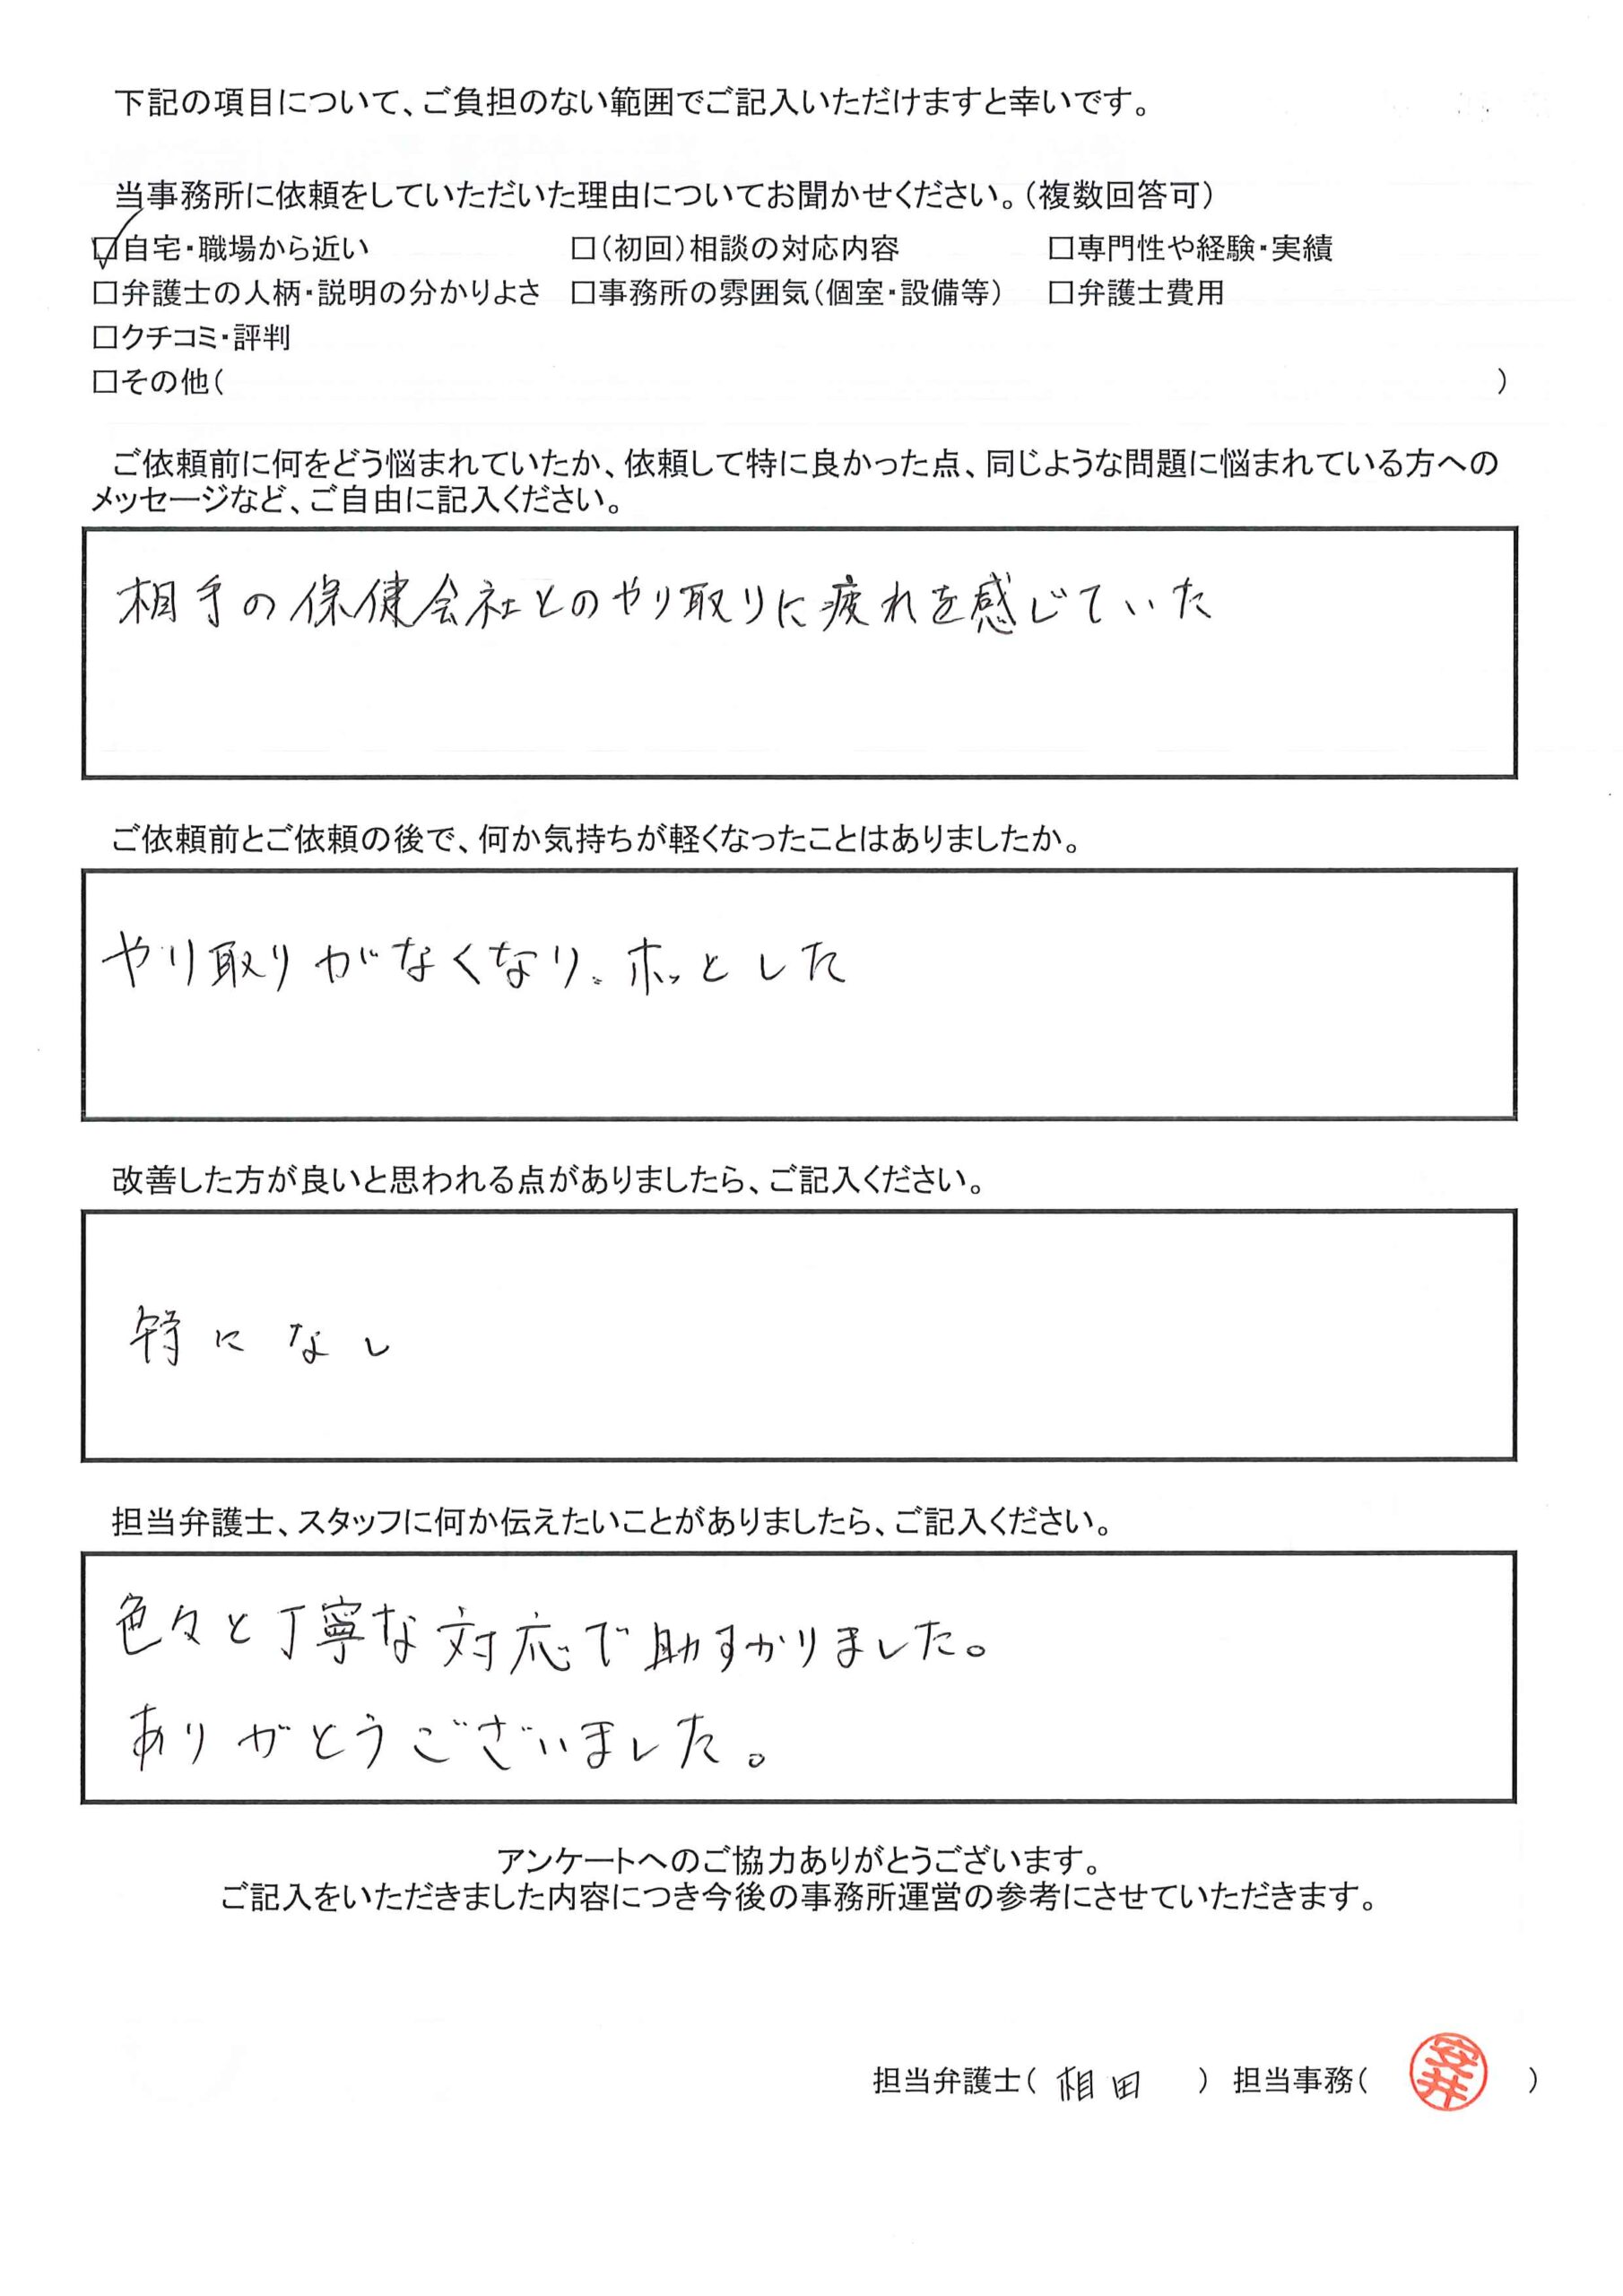 下記の項目について、ご負担のない範囲でご記入いただけますと幸いです。
当事務所に依頼をしていただいた理由についてお聞かせください。（複数回答可）
☑自宅・職場から近い　□（初回）相談の対応内容　□専門性や経験・実績
□弁護士の人柄・説明の分かりよさ　□事務所の雰囲気（個室・設備等）　□弁護士費用
□クチコミ・評判
□その他（　）
ご依頼前に何をどう悩まれていたか、依頼して特に良かった点、同じような問題に悩まれている方への
メッセージなど、ご自由に記入ください。
相手の保健会社とのやり取りに疲れを感じていた
ご依頼前とご依頼の後で、何か気持ちが軽くなったことはありましたか。
やり取りがなくなり、ホッとした
改善した方が良いと思われる点がありましたら、ご記入ください。
特になし
担当弁護士、スタッフに何か伝えたいことがありましたら、ご記入ください。
色々と丁寧な対応で助すかりました。
ありがとうございました。
アンケートへのご協力ありがとうございます。
ご記入をいただきました内容につき今後の事務所運営の参考にさせていただきます。
担当弁護士（ 相田 ）　担当事務（ 安井 ）